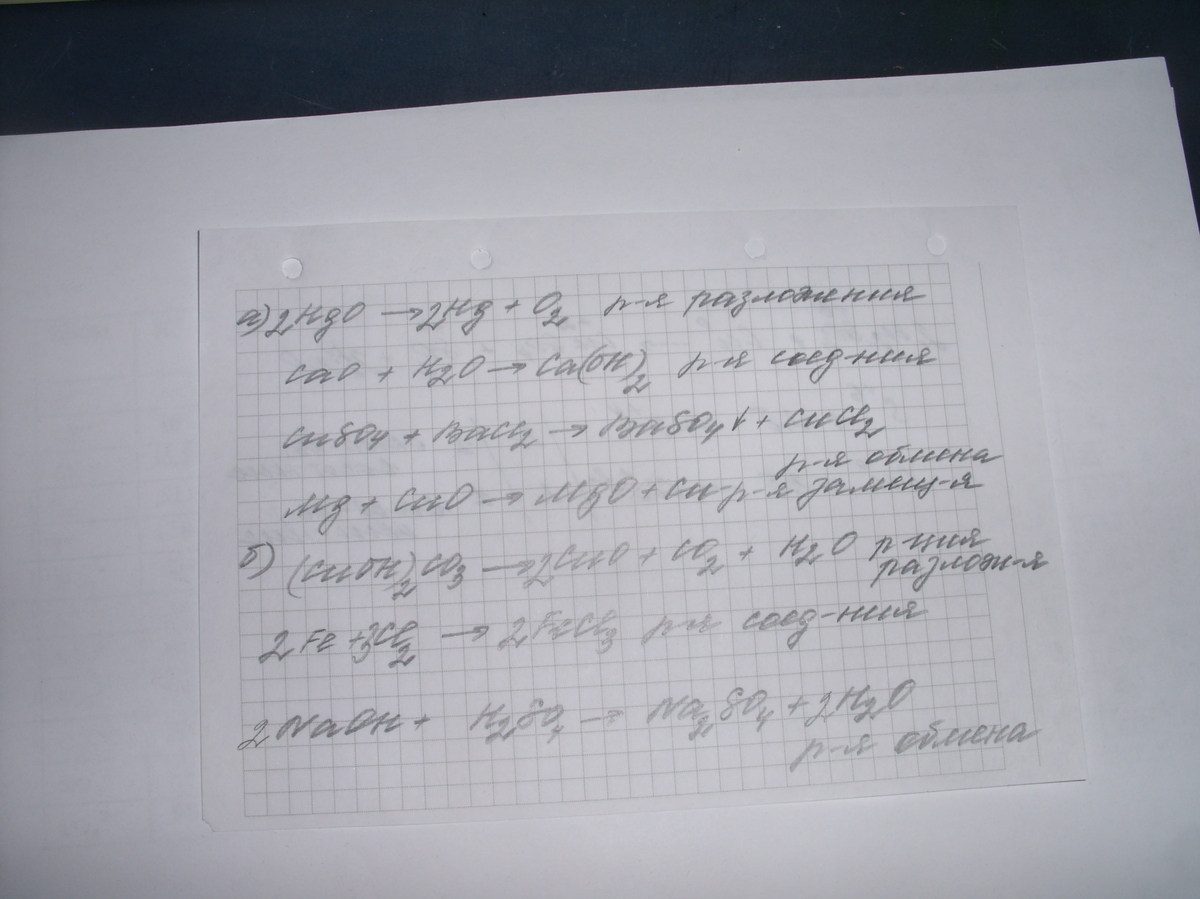 а) 2HgO → 2Hg + O₂ р-я разложения
CaO + H₂O → Ca(OH)₂ р-я соед-ния
CuSO₄ + BaCl₂ → BaSO₄↓ + CuCl₂
р-я обмена
Mg + CuO → MgO + Cu - р-я замещ-я
б) (CuOH)₂CO₃ → 2CuO + CO₂ + H₂O р-ция
разлож-я
2Fe + 3Cl₂ → 2FeCl₃ р-я соед-ния
2NaOH + H₂SO₄ → Na₂SO₄ + 2H₂O
р-я обмена